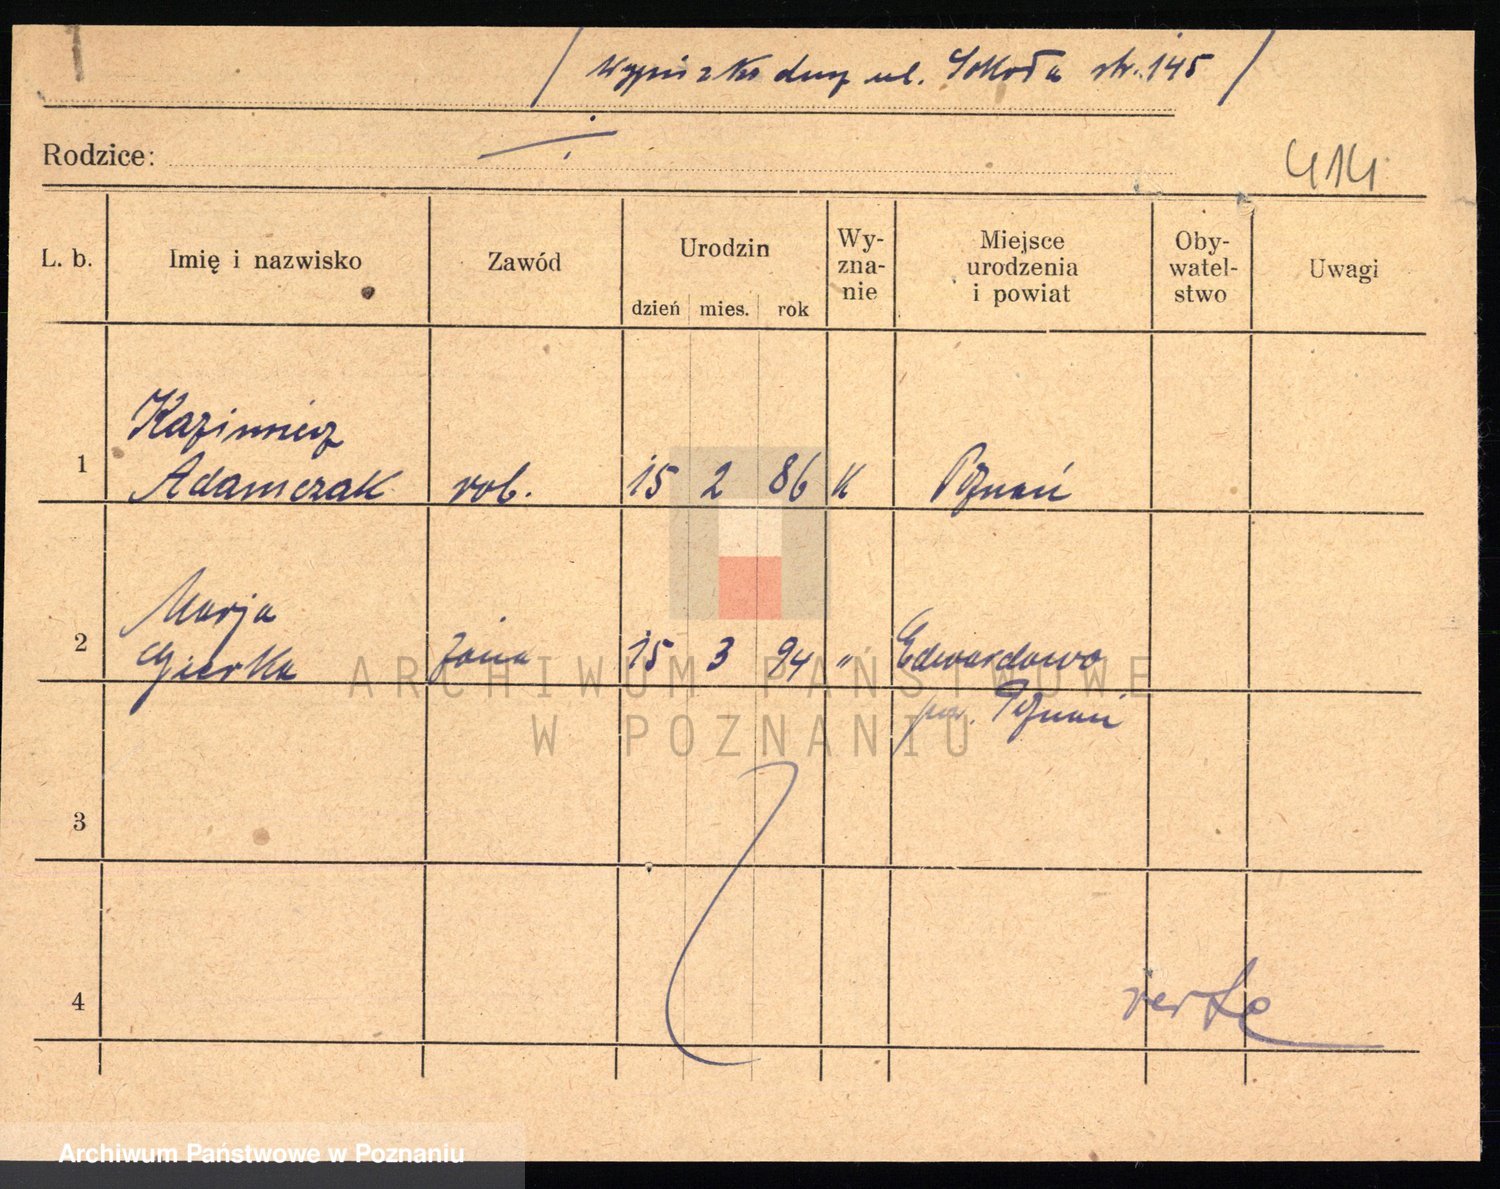 ul. Sokoła str. 145
Rodzice:
414
L. b.
Imię i nazwisko
Zawód
Urodzin
dzień mies. rok
Wy-
zna-
nie
Miejsce
urodzenia
i powiat
Oby-
watel-
stwo
Uwagi
Kazimierz
1 Adamczak rob. 15 2 86 K Poznań
Marja
2 Gierka żona 15 3 94 " Edwardowo
pow. Poznań
3
4
verte
ARCHIWUM PAŃSTWOWE
W POZNANIU
Archiwum Państwowe w Poznaniu